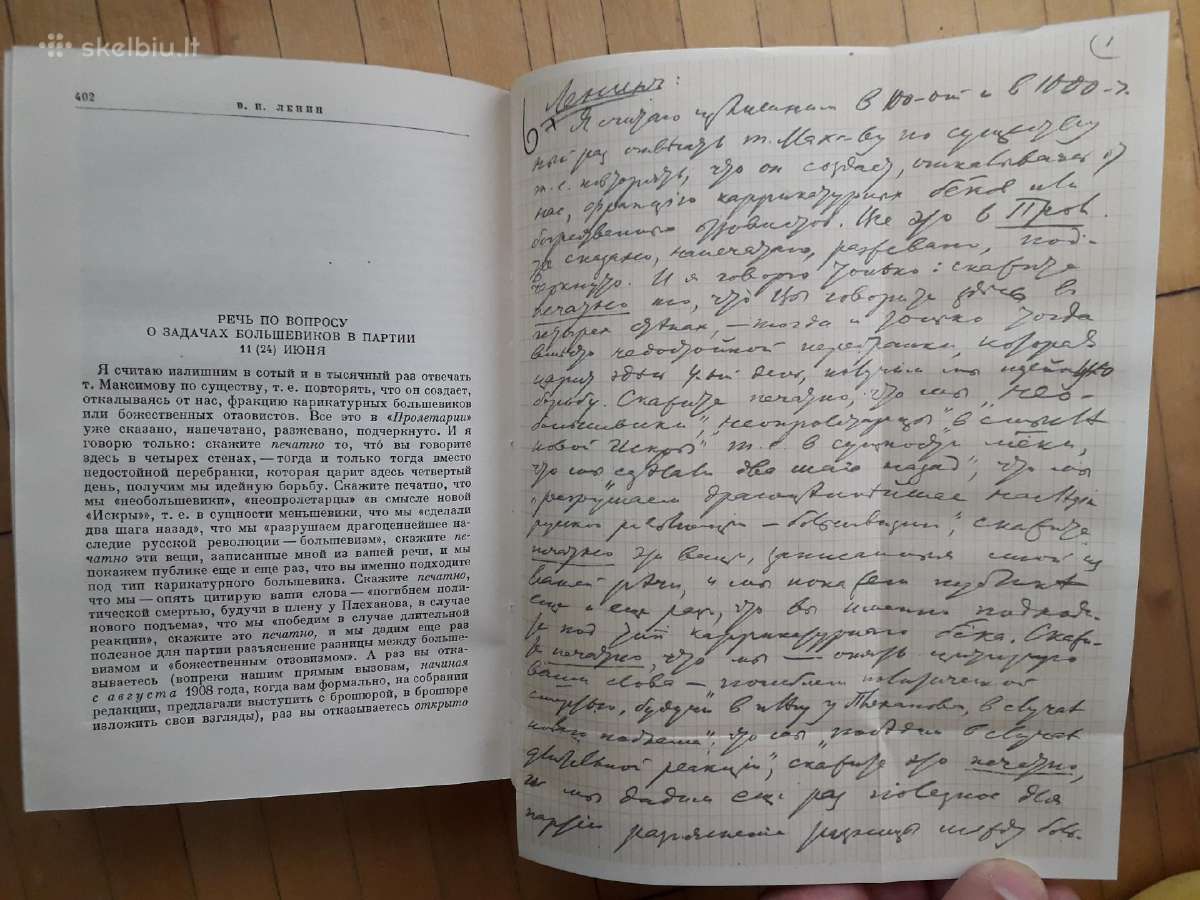 skelbiu.lt
402
В. И. ЛЕНИН
РЕЧЬ ПО ВОПРОСУ
О ЗАДАЧАХ БОЛЬШЕВИКОВ В ПАРТИИ
11 (24) ИЮНЯ
Я считаю излишним в сотый и в тысячный раз отвечать
т. Максимову по существу, т. е. повторять, что он создает,
откалываясь от нас, фракцию карикатурных большевиков
или божественных отзовистов. Все это в «Пролетарии»
уже сказано, напечатано, разжевано, подчеркнуто. И я
говорю только: скажите печатно то, что́ вы говорите
здесь в четырех стенах, — тогда и только тогда вместо
недостойной перебранки, которая царит здесь четвертый
день, получим мы идейную борьбу. Скажите печатно, что
мы «необольшевики», «неопролетарцы» «в смысле новой
«Искры»», т. е. в сущности меньшевики, что мы «сделали
два шага назад», что мы «разрушаем драгоценнейшее на-
следие русской революции — большевизм», скажите пе-
чатно эти вещи, записанные мной из вашей речи, и мы
покажем публике еще и еще раз, что вы именно подходите
под тип карикатурного большевика. Скажите печатно,
что мы — опять цитирую ваши слова — «погибнем поли-
тической смертью, будучи в плену у Плеханова, в случае
нового подъема», что мы «победим в случае длительной
реакции», скажите это печатно, и мы дадим еще раз
полезное для партии разъяснение разницы между больше-
визмом и «божественным отзовизмом». А раз вы отка-
зываетесь (вопреки нашим прямым вызовам, начиная
с августа 1908 года, когда вам формально, на собрании
редакции, предлагали выступить с брошюрой, в брошюре
изложить свои взгляды), раз вы отказываетесь открыто
1
Ленин:
Я считаю излишним в 100-ый и в 1000-ч
ный раз отвечать т. Макс-ву по существу
т. е. повторять, что он создает, откалываясь от
нас, фракцию каррикатурных беков или
божественных отзовистов. Все это в Прол.
уже сказано, напечатано, разжевано, под-
черкнуто. И я говорю только: скажите
печатно то, что вы говорите здесь в
четырех стенах, — тогда и только тогда
вместо недостойной перебранки, которая
царит здесь 4-ый день, получим мы идейную
борьбу. Скажите печатно, что мы „нео-
большевики", „неопролетарцы" „в смысле
новой Искры" т. е. в сущности меки,
что мы „сделали два шага назад", что мы
„разрушаем драгоценнейшее наследие
русской революции — большевизм", скажите
печатно эти вещи, записанные мной из
вашей речи, и мы покажем публике
еще и еще раз, что вы именно подходи-
те под тип каррикатурного бека. Скажи-
те печатно, что мы — опять цитирую
ваши слова — погибнем политической
смертью, будучи в плену у Плеханова, в случае
нового подъема", что мы „победим в случае
длительной реакции", скажите это печатно,
и мы дадим еще раз полезное для
партии разъяснение разницы между боль-